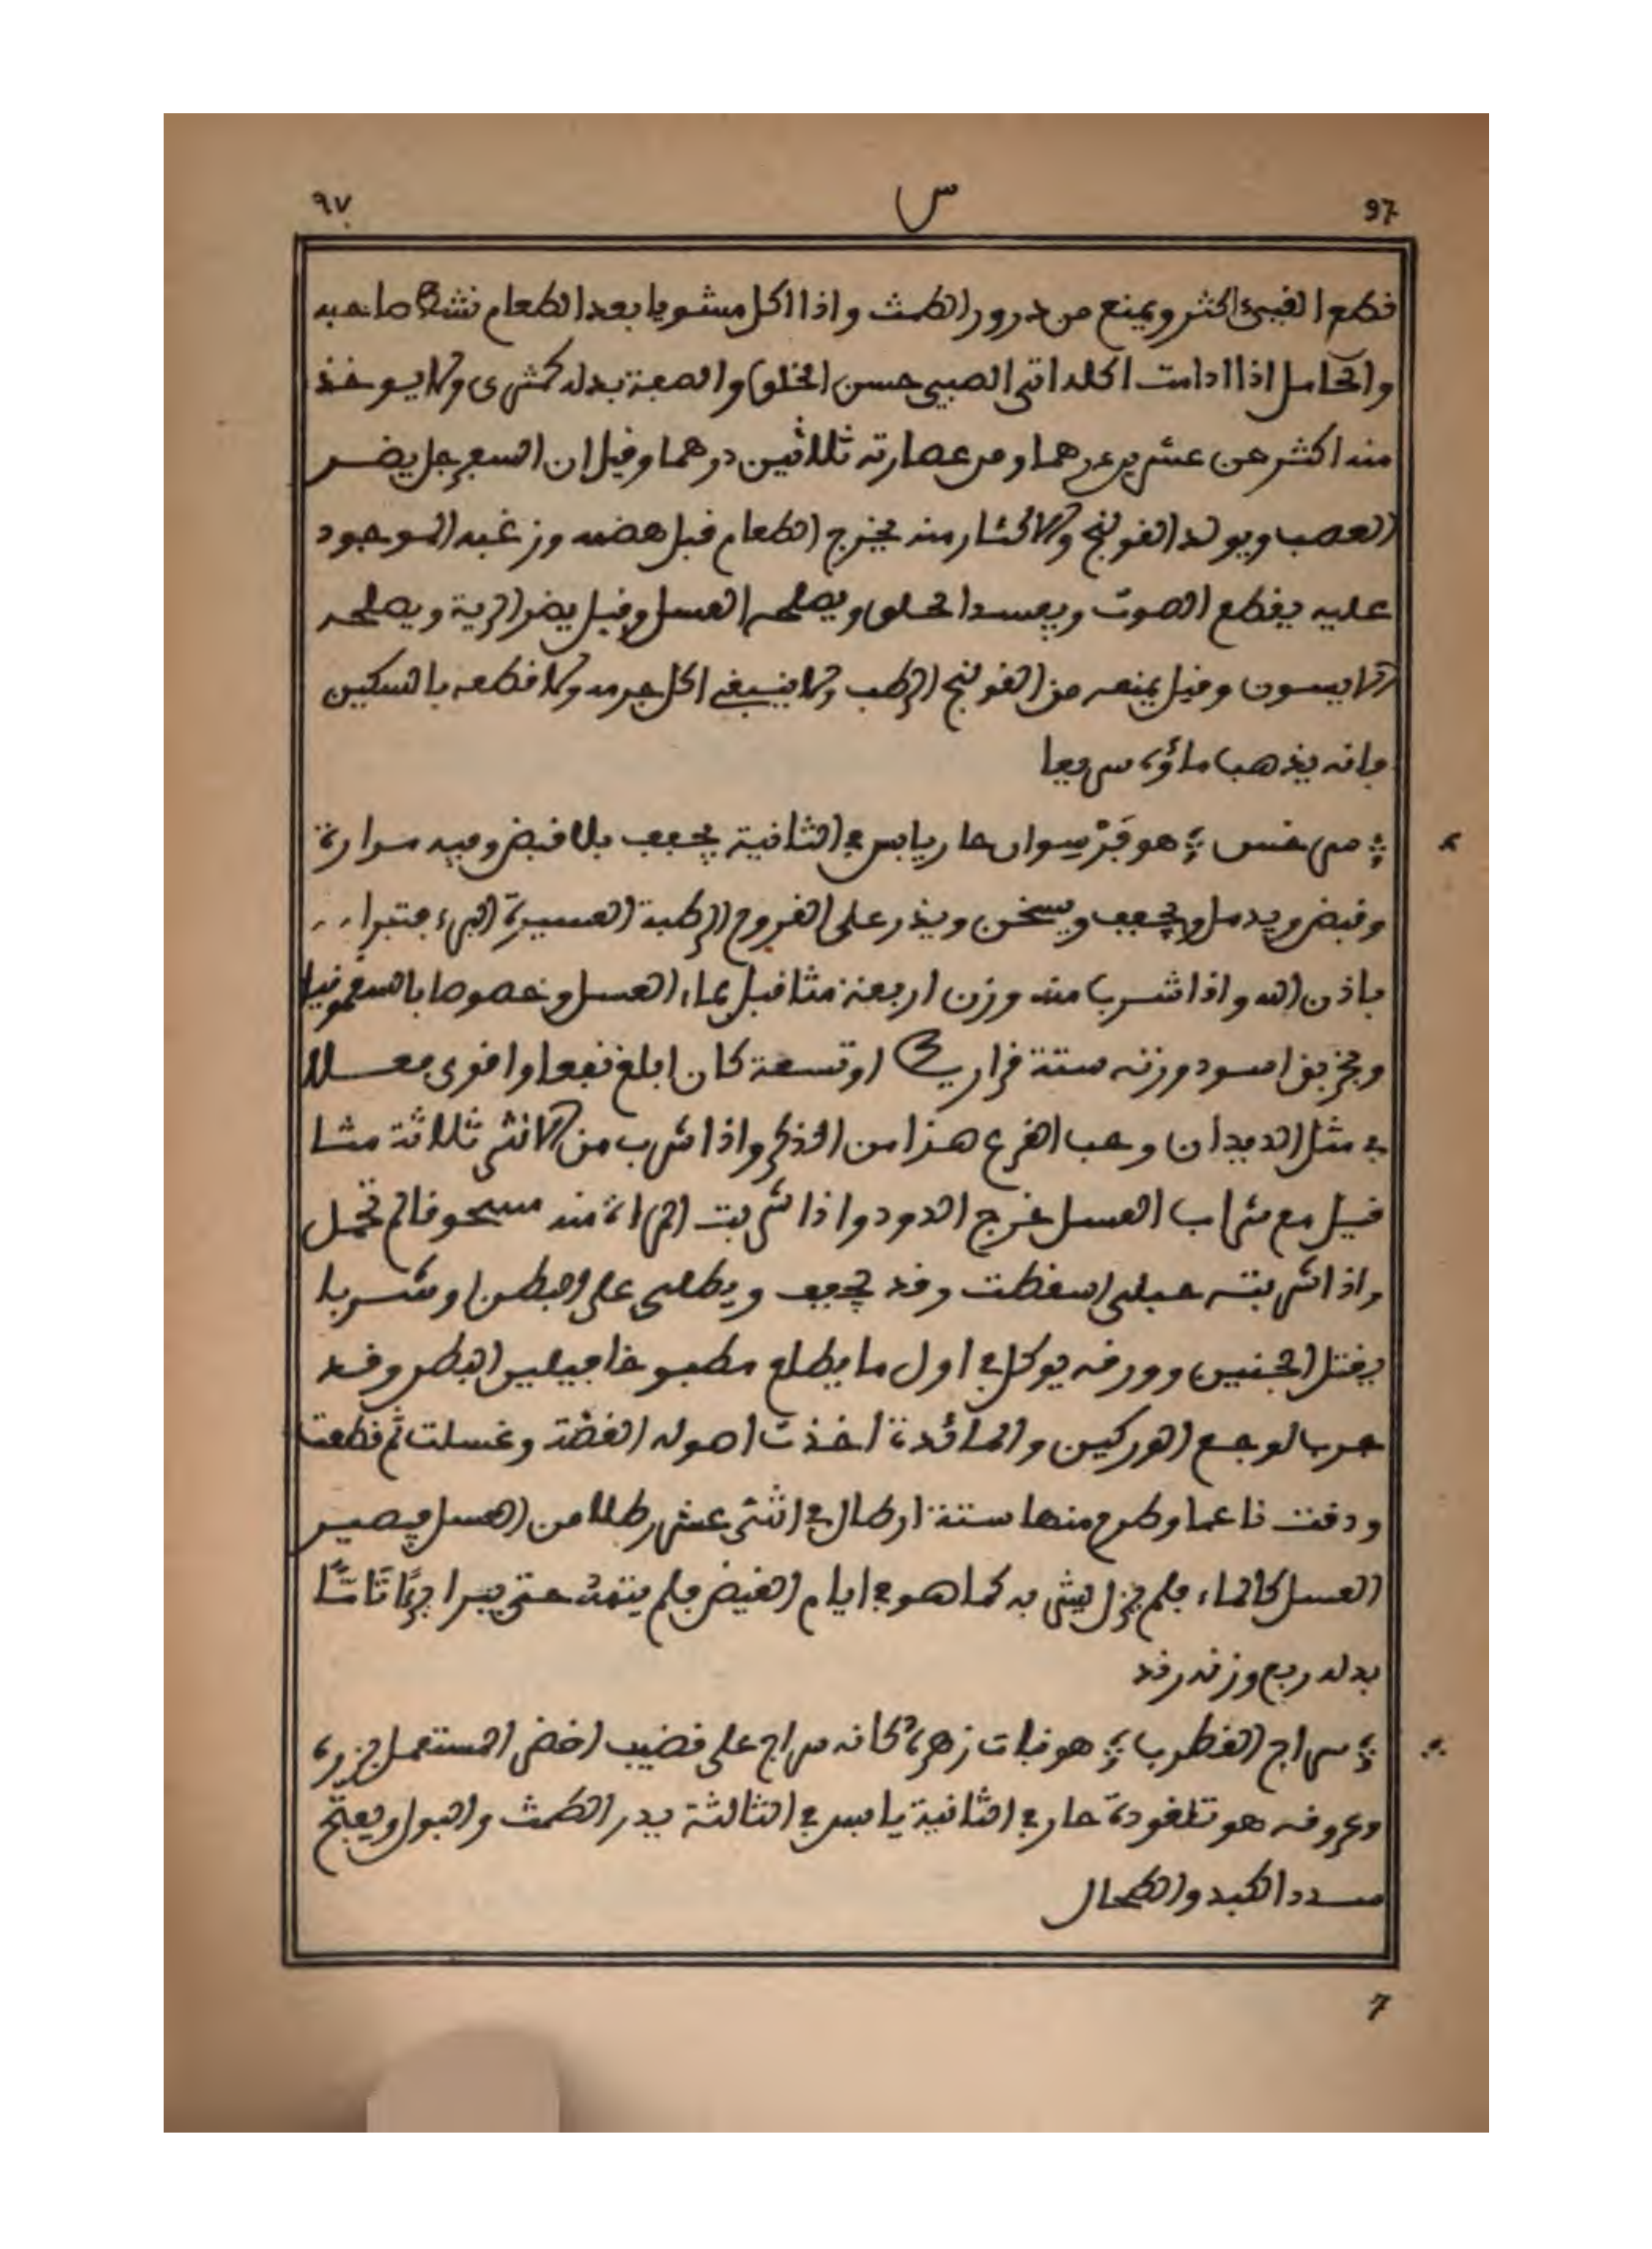 97 س ٩٧
قطع القيء اكثر ويمنع من درور الطمث واذا اكل مشويا بعد الطعام نشط صاحبه
والحامل اذا ادامت اكله اتى الصبي حسن الخلق والصفة بدله كمثرى ولا يوخذ
منه اكثر من عشرين درهما ومن عصارته ثلاثين درهما وقيل ان السفرجل يضر
العصب ويولد القولنج والاكثار منه يخرج الطعام قبل هضمه وزغبه الموجود
عليه يقطع الصوت ويفسد الحلق ويصلحه العسل وقيل يضر الرية ويصلحه
الانيسون وقيل يمنعه من القولنج الرطب ولا ينبغي اكل جرمه ولا قطعه بالسكين
فانه يذهب ماؤه سريعا
سرخس هو فرسيوان حار يابس في الثانية يجفف بلا قبض وفيه مرارة
وقبض ويدمل ويجفف ويسخن ويذر على القروح الرطبة العسيرة البرء فتبرا
باذن الله واذا شرب منه وزن اربعة مثاقيل بماء العسل وخصوصا بالسقمونيا
وبخربق اسود وزنه ستة قراريط او تسعة كان ابلغ نفعا واقوى فعلا
في مثل الديدان وحب القرع هذا من الذكر واذا شرب من الانثى ثلاثة مثا
قيل مع شراب العسل خرج الدود واذا شربت المراة منه مسحوقا لم تحمل
واذا شربته حبلى اسقطت وقد يجفف ويطلى على البطن وشربا
يقتل الجنين وورقه يوكل في اول ما يطلع مطبوخا فيلين البطن وقد
جرب لوجع الوركين والمائدة اخذت اصوله الغضة وغسلت ثم قطعت
ودقت ناعما وطرح منها ستة ارطال في اثنى عشر رطلا من العسل فيصير
العسل كالماء فلم يزل يشرب به كما هو في ايام القيض فلم يتمه حتى يبرا برءا تاما
بدله ربع وزنه رند
سراج القطرب هو نبات زهره كانه سراج على قضيب اخضر المستعمل بزره
وعروقه هو تلغودة حار في الثانية يابس في الثالثة يدر الطمث والبول ويفتح
سدد الكبد والطحال
7